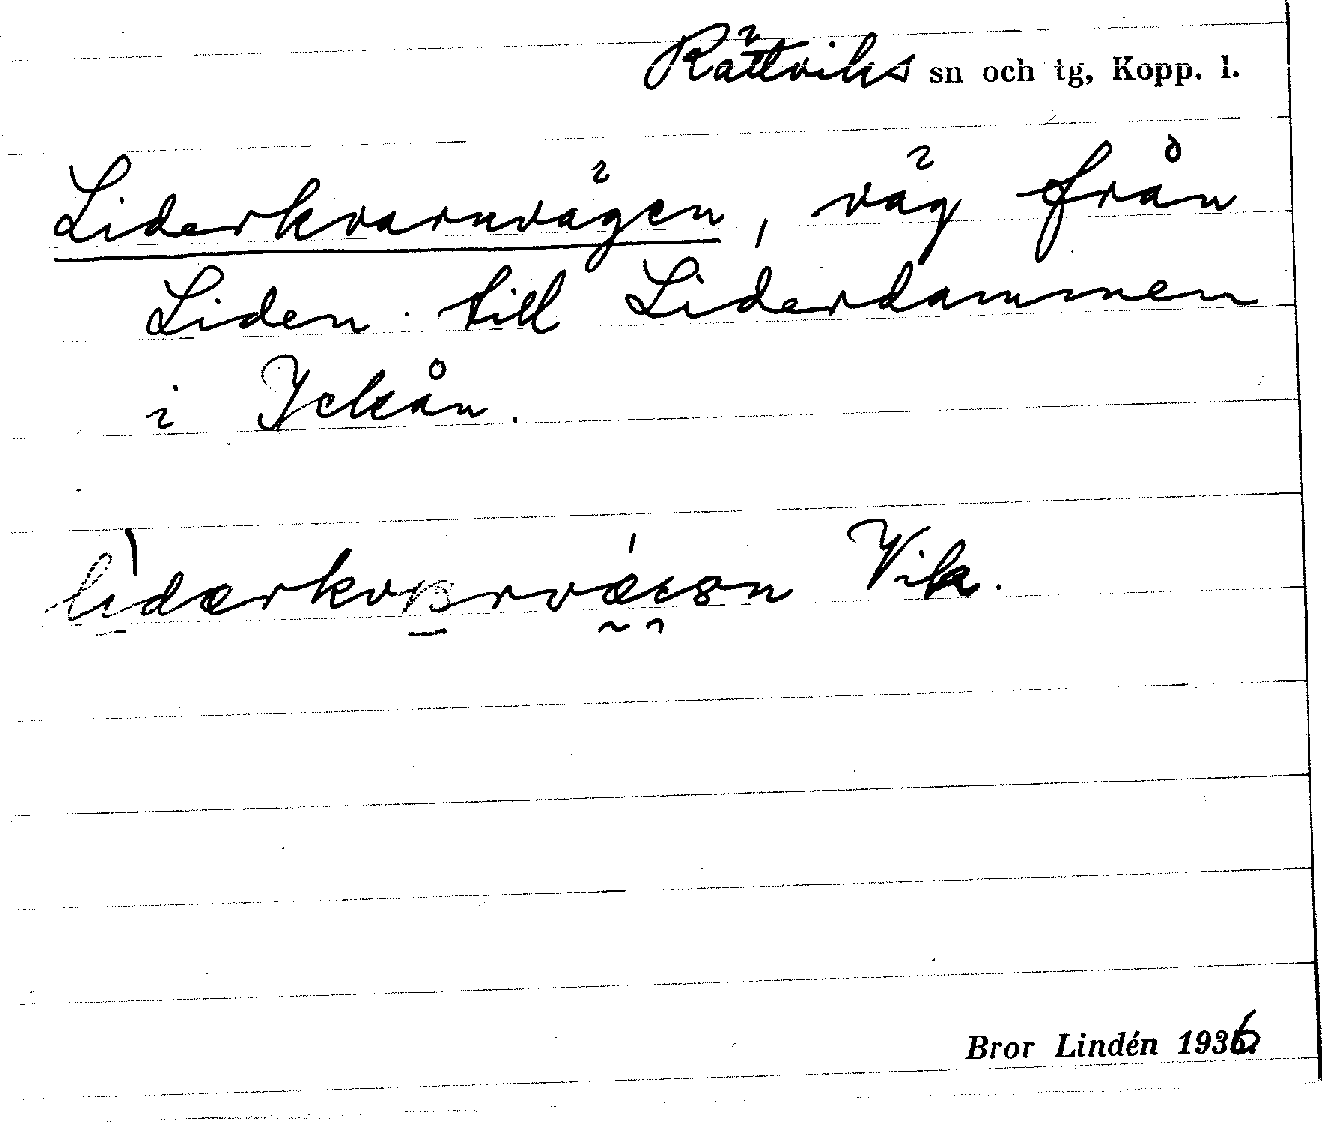 Rättviks sn och tg, Kopp. l.
Liderkvarnvägen, väg från
Liden till Liderdammen
i Ickån.
Vik.
Bror Lindén 1936